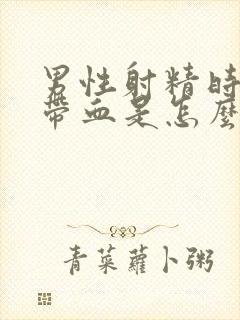 男性射精時
帶血是怎麼
青菜蘿卜粥